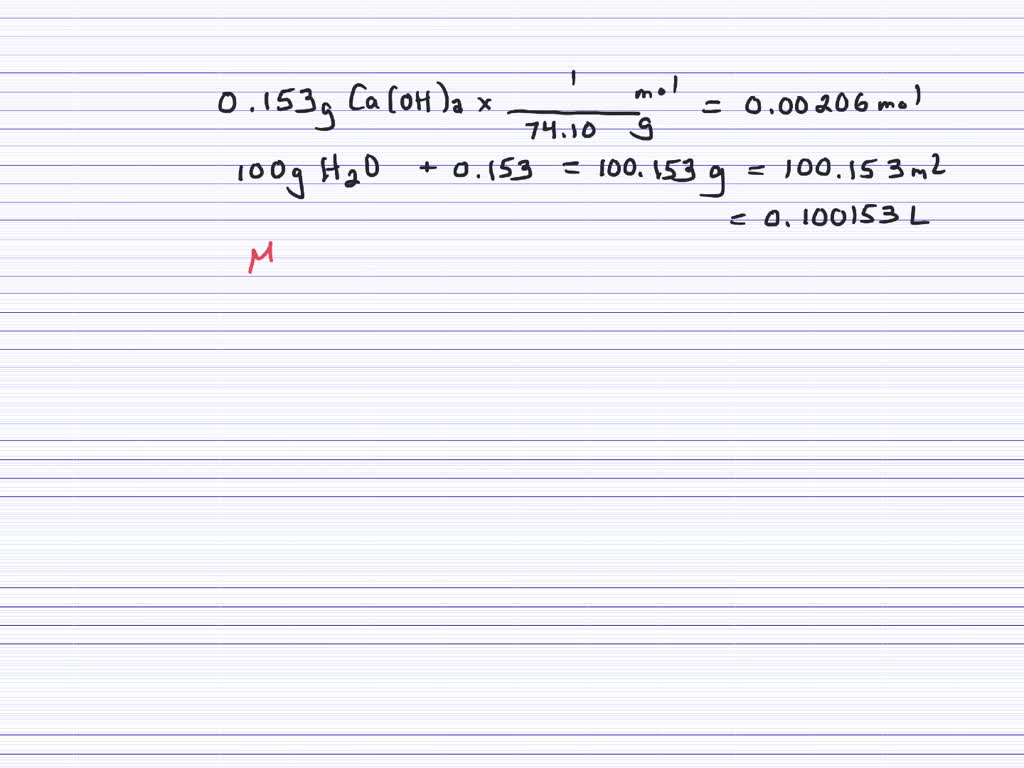 0.153g Ca(OH)2 × 1 mol / 74.10 g = 0.00206 mol
100g H2O + 0.153 = 100.153 g = 100.153 mL
= 0.100153 L
M